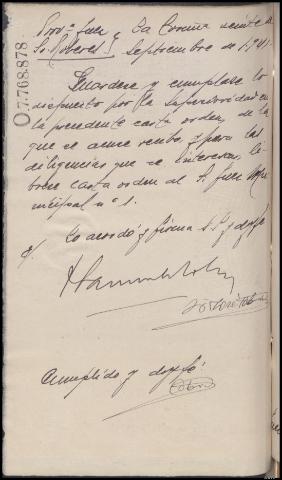 Prov.ª Juez
Sr. Roberes.
La Coruña veinte de
Septiembre de 1.941.
O7.768.878
Guardese y cumplase lo
dispuesto por la Superioridad en
la precedente carta orden, de la
que se acuse recibo, y para las
diligencias que se interesan, li-
brese carta orden al Sr. Juez Mu-
nicipal nº 1.
Lo acordó y firma S.Sª doy fé
Cumplido y doy fé